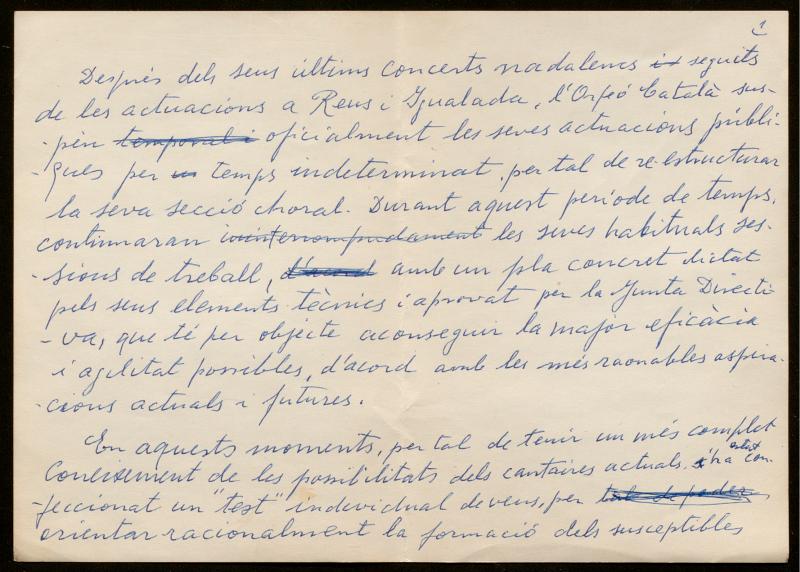 1
Després dels seus últims concerts nadalencs i seguits
de les actuacions a Reus i Igualada, l'Orfeó Català sus-
-pèn temporal i oficialment les seves actuacions públi-
-ques per un temps indeterminat, per tal de re-estructurar
la seva secció choral. Durant aquest període de temps,
continuaran ininterrompudament les seves habituals ses-
-sions de treball, d'acord amb un pla concret dictat
pels seus elements tècnics i aprovat per la Junta Directi
-va, que té per objecte aconseguir la major eficàcia
i agilitat possibles, d'acord amb les més raonables aspira-
-cions actuals i futures.
En aquests moments, per tal de tenir un més complet
coneixement de les posibilitats dels cantaires actuals. s'ha estat con-
-feccionat un "test" individual de veus, per tal de poder,
orientar racionalment la formació dels susceptibles